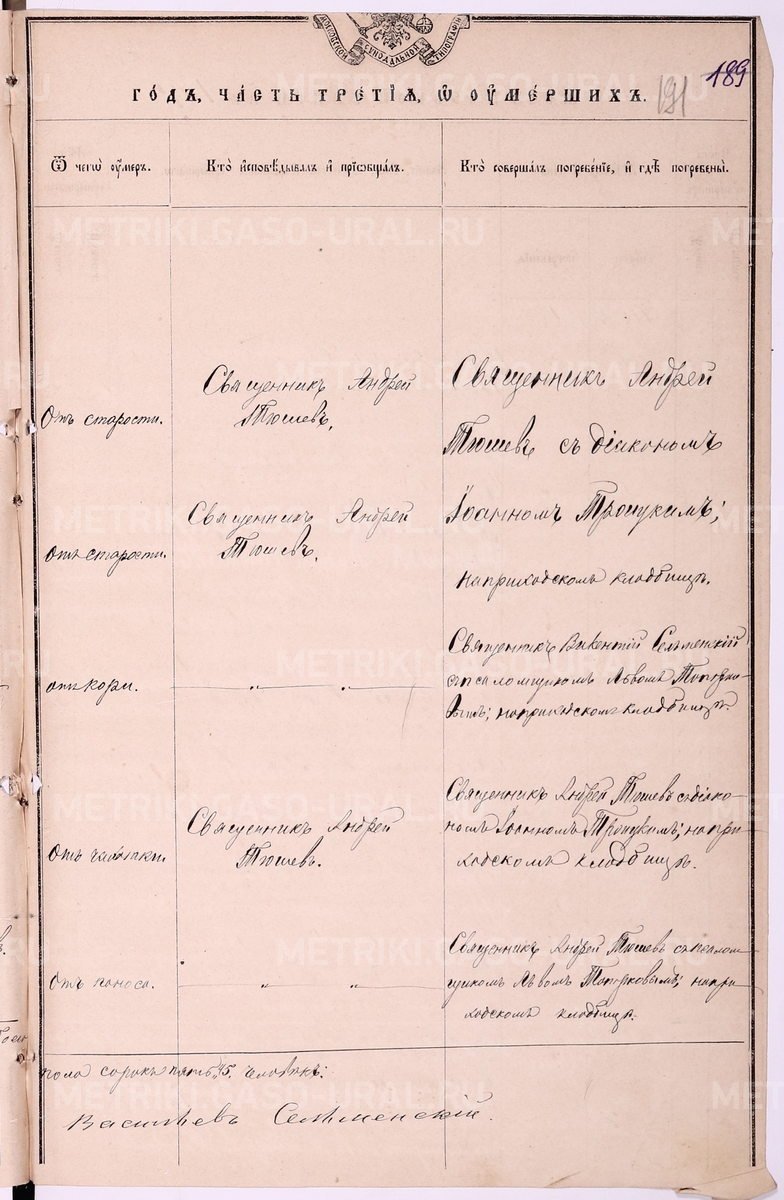 МОСКОВСКОЙ СѴНОДАЛЬНОЙ ТИПОГРАФІИ
189
191
ГОДЪ, ЧАСТЬ ТРЕТІЯ, Ѡ ОУМЕРШИХЪ.
Ѿ чегѡ оумеръ.
Кто исповѣдывалъ и пріѡбщалъ.
Кто совершалъ погребеніе, и гдѣ погребены.
METRIKI.GASO-URAL.RU
Отъ старости.
Священникъ Андрей
Тюшевъ.
Священникъ Андрей
Тюшевъ съ діакономъ
Іоанномъ Троицкимъ;
на приходскомъ кладбищѣ.
отъ старости.
Священникъ Андрей
Тюшевъ.
отъ кори.
— „ — „ —
Священникъ Викентій Сельменскій
съ псаломщикомъ Львомъ Топорко-
вымъ; на приходскомъ кладбищѣ.
Отъ чахотки.
Священникъ Андрей
Тюшевъ.
Священникъ Андрей Тюшевъ съ діако-
номъ Іоанномъ Троицкимъ; на при-
ходскомъ кладбищѣ.
Отъ поноса.
— „ — „ —
Священникъ Андрей Тюшевъ съ псалом-
щикомъ Львомъ Топорковымъ; на при-
ходскомъ кладбищѣ.
пола сорокъ пять, 45. человѣкъ:
Сельменскій.